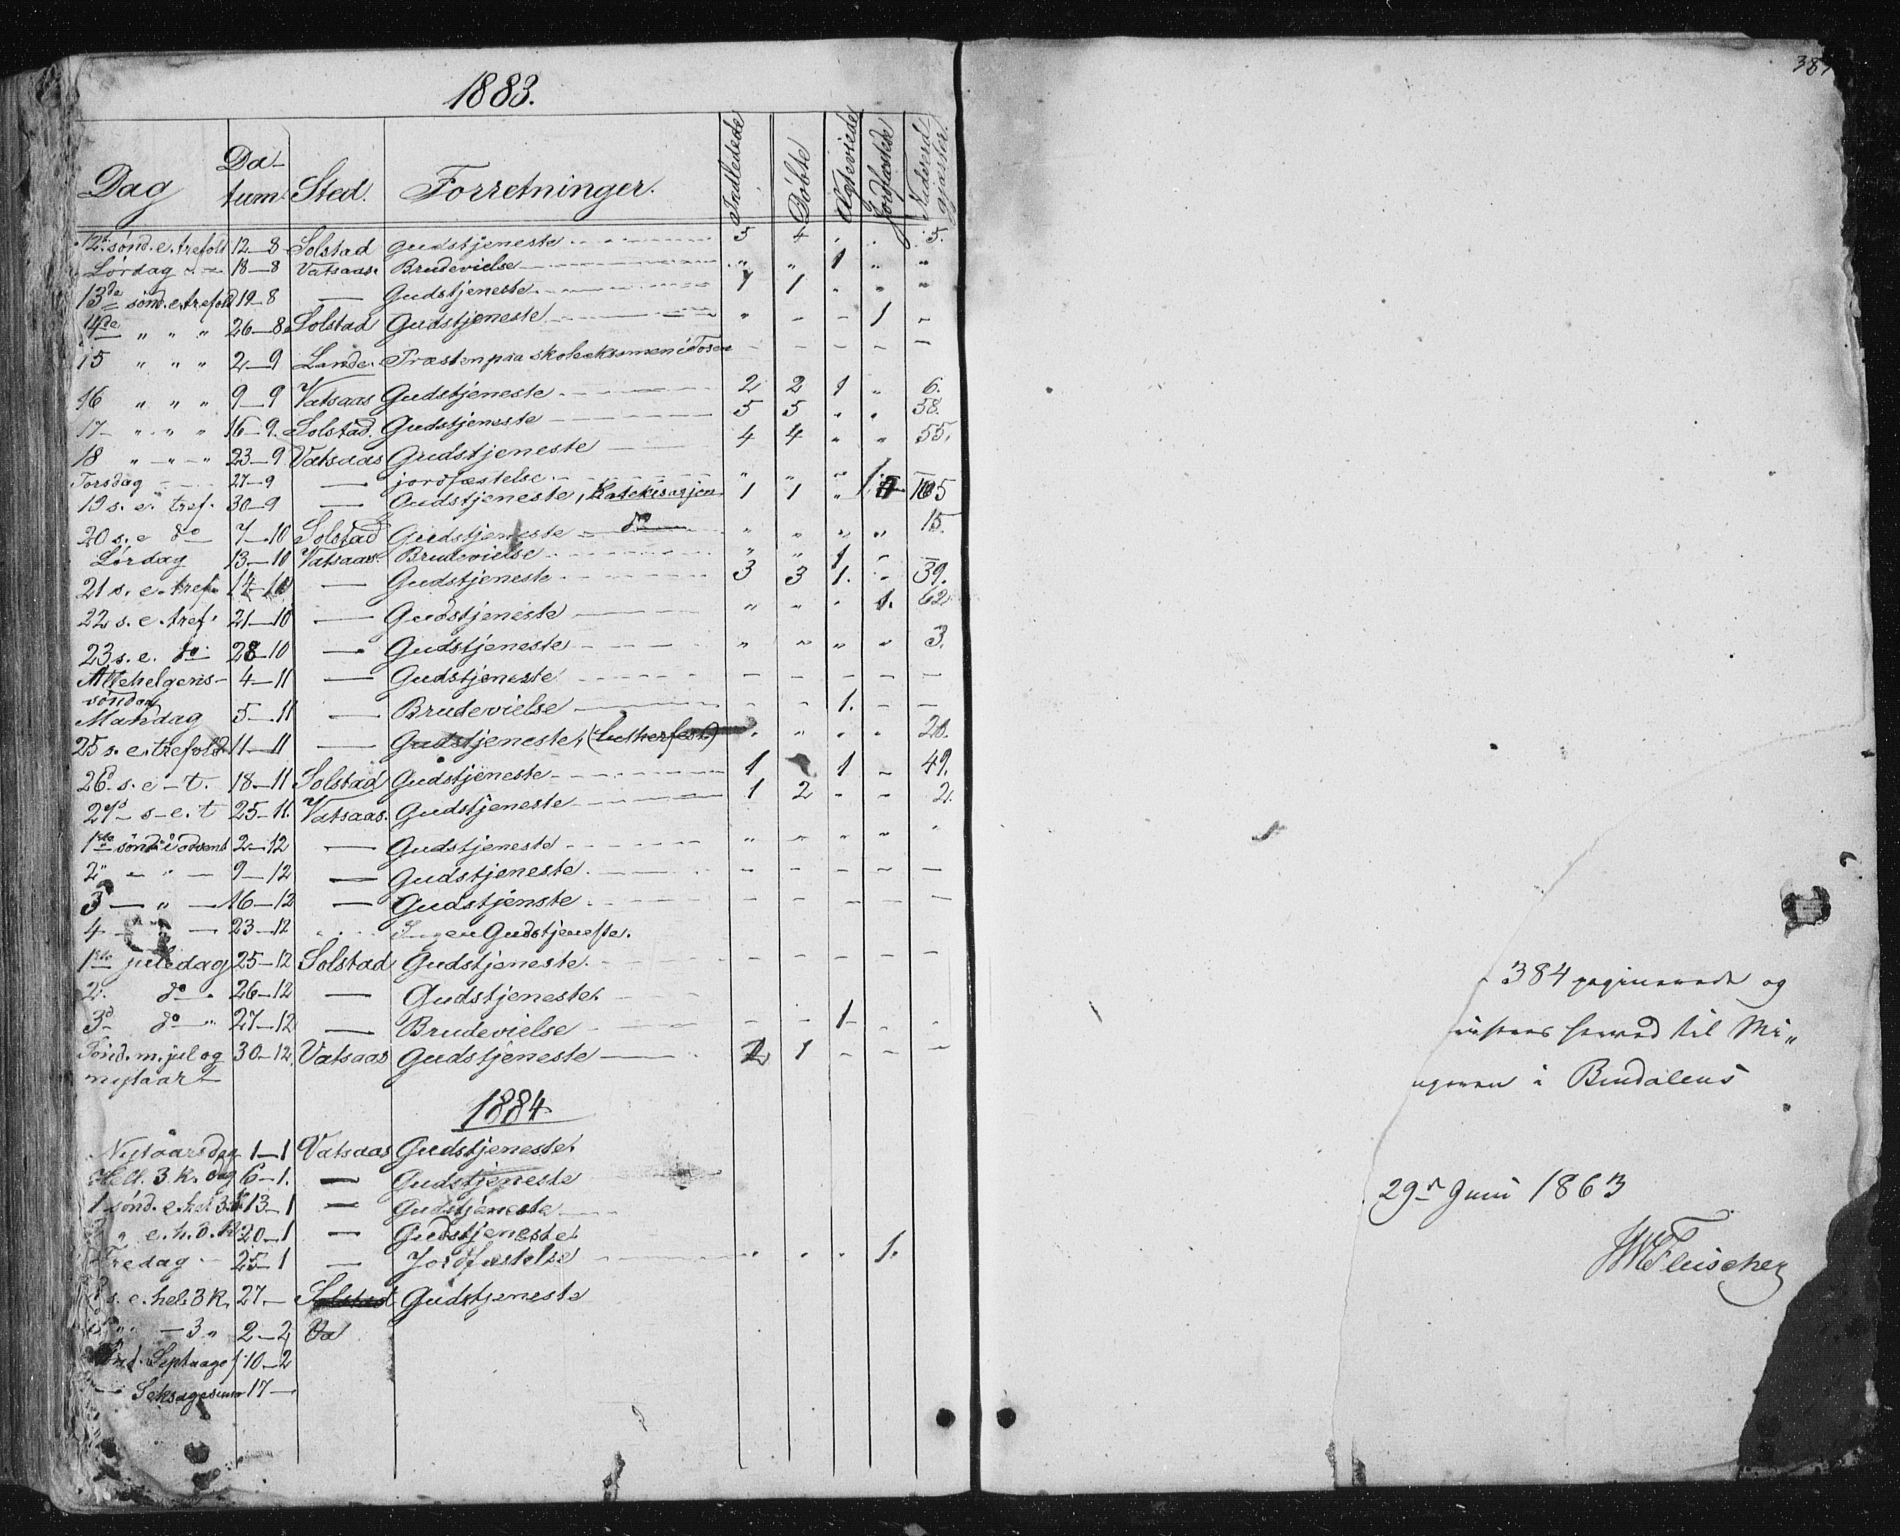 1883.
Dag Da- tum. Sted. Forretninger. Indledede Døbte Ægteviede Jordfæstede Nadverdgjæster.
12te sønd. e. trefold 12–8 Solstad Gudstjeneste 5 4 . . 5.
Lørdag 18–8 Vatsaas. Brudevielse " " 1 " "
13de sønd. e. trefold 19–8 — Gudstjeneste 1 1 " " "
14de " " " 26–8 Solstad Gudstjeneste " – – 1 –
15 " " " 2–9 Lande. Præsten paa skoleeksamen i Tosen – – – – –
16 " " " 9–9 Vatsaas Gudstjeneste 2 2 1 " 6.
17– " " " 16–9. Solstad. Gudstjeneste 5 5 " " 58.
18 " – " – " 23–9 Vatsaas Gudstjeneste 4 4 " " 55.
Torsdag 27–9 — jordfæstelse " " " 1 –
19 s. e. tref. 30–9 — Gudstjeneste, Katekisasjon 1 1 " 105
20 s. e do 7–10 Solstad Gudstjeneste – do " " " " 15.
Lørdag 13–10 Vatsaas. Brudevielse " " 1 – –
21 s. e. tref. 14–10 — Gudstjeneste 3 3 1. – 39.
22 s. e. tref. 21–10 — Gudstjeneste " " " 1. 62
23 s. e. do 28–10 — Gudstjeneste " " " " 3.
Allehelgens- 4–11 — Gudstjeneste – – – – –
søndag
Mandag 5–11 — Brudevielse – – 1. – –
25 s. e. trefold 11–11 — Gudstjeneste, (Lutherfest) . " . . 20.
26. s. e – t. 18–11 Solstad Gudstjeneste 1 1 – 49.
27 – s – e. t 25–11. Vatsaas. Gudstjeneste 1 2 – – 2.
1ste sønd. i advent 2–12 — Gudstjeneste " – " " "
2 – " – 9–12 — Gudstjeneste. – – – – –
3 — " — 16–12 — Gudstjenste – – – – –
4 – – 23–12 Ingen Gudstjeneste.
1ste juledag 25–12 Solstad Gudstjeneste. – – – – –
2. do 26–12 — Gudstjeneste.
3d do " 27–12 — Brudevielse – – 1 – –
Sønd. m. jul og 30–12 Vatsaas Gudstjeneste 2 1 – – –
nytaar
1884
Nytaarsdag 1–1 Vatsaas Gudstjeneste.
Hell. 3. k. dag 6–1. — Gudstjeneste
1 sønd. e. hel 3 k 13–1 — Gudstjeneste
2 " e. h. 3. K 20–1 — Gudstjeneste.
Fredag – 25–1 — Jordfæstelse . . . 1.
3 s. e. hel. 3 K. 27.– Solstad Gudstjeneste
" – 3 " 2–2 Va
Sønd. Septuages 10–2
— Seksagesima 17 –
384 paginerede og
til Mi-
i Bindalens
29de Juni 1863
Fleischer